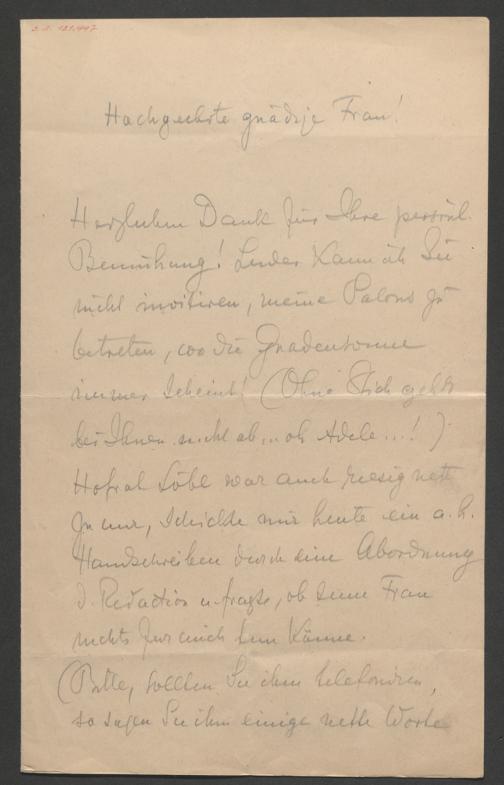 I.N. 121.447
Hochgeehrte gnädige Frau!
Herzlichen Dank für Ihre persönl.
Bemühung! Leider kann ich Sie
nicht invitiren, meine Salons zu
betreten, wo die Gnadensonne
immer scheint! (Ohne Stich geht's
bei Ihnen nicht ab, oh Adele...!)
Hofrat Löbl war auch riesig nett
zu mir, schickte mir heute ein a. h.
Handschreiben durch eine Abordnung
d. Redaction u. fragte, ob seine Frau
nichts für mich tun könne.
(Bitte, sollten Sie ihm telefoniren,
so sagen Sie ihm einige nette Worte